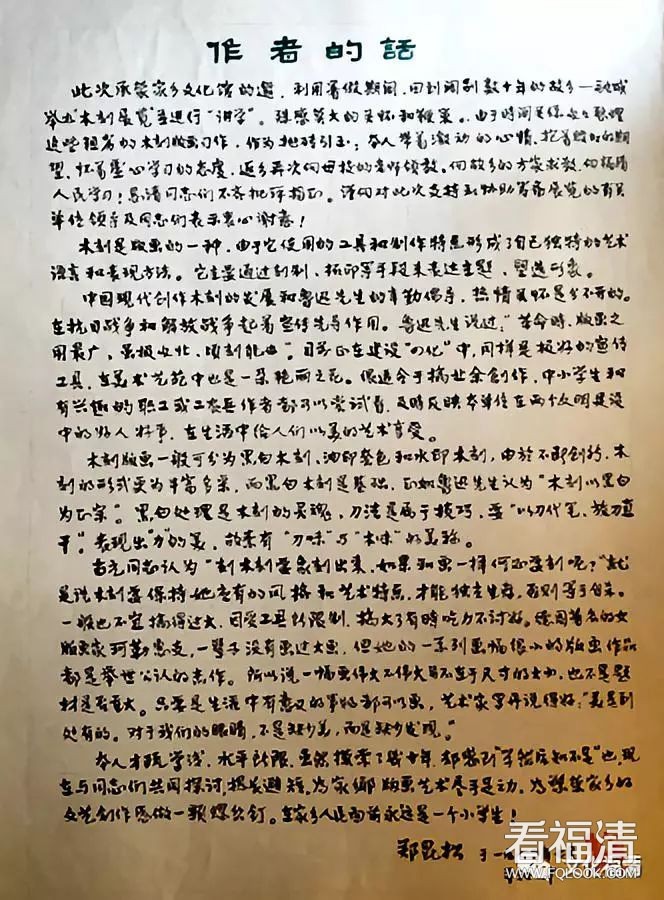 作者的話
此次承蒙家乡文化馆的邀,利用暑假期间,回到阔别数十年的故乡—融城
举办"木刻展览"并进行"讲学"。深感莫大的关怀和鞭策。由于时间
这些粗劣的木刻版画习作,作为抛砖引玉;本人带着激动的心情,抱着的期
望,怀着虚心学习的态度,返乡再次向母校的老师领教。向故乡的方家求教,向福清
人民学习!恳请同志们不吝批评指正。谨向对此次支持和协助筹备展览的有关
单位领导及同志们表示衷心谢意!
木刻是版画的一种,由于它使用的工具和制作特点形成了自己独特的艺术
语言和表现方法。它主要通过刻制、拓印等手段来表达主题,塑造形象。
中国现代创作木刻的发展和鲁迅先生的辛勤倡导,热情关怀是分不开的。
在抗日战争和解放战争起着宣传先导作用。鲁迅先生说过:"革命时,版画之
用最广,虽极匆忙,顷刻能办"。目前正在建设"四化"中,同样是极好的宣传
工具,在美术艺苑中也是一朵艳丽之花。很适合于搞业余创作,中小学生和
有兴趣的职工或工农兵作者都可以尝试着,及时反映本单位在两个文明建设
中的好人好事,在生活中给人们以美的艺术享受。
木刻版画一般可分为黑白木刻、油印套色和水印木刻,由於不断创新,木
刻的形式更为丰富多采,而黑白木刻是基础,正如鲁迅先生认为"木刻以黑白
为正宗"。黑白处理是木刻的灵魂,刀法是属于技巧,要"以刀代笔,放刀直
干"。表现出"力"的美,故素有"刀味"与"木味"的美称。
古元同志认为"刻木刻要象刻出来,如果和画一样何必要刻呢?"就
是说木刻要保持她应有的风格和艺术特点,才能独立生存,否则等于自杀。
一般也不宜搞得过大,因受工具所限制,搞大了有时吃力不讨好。德国著名的女
版画家珂勒惠支,一辈子没有画过大画,但她的一系列画幅很小的版画作品
都是举世公认的杰作。所以说一幅画伟大不伟大并不在于尺寸的大小,也不是题
材是否重大。只要是生活中有意义的事物都可以画,艺术家罗丹说得好:"美是到
处有的。对于我们的眼睛,不是缺少美,而是缺少发现。"
本人才疏学浅,水平所限,虽然摸索了几十年,却感到"学然后知不足"也,现
在与同志们共同探讨,扬长避短,为家乡版画艺术尽手足动,为繁荣家乡的
文艺创作愿做一颗螺丝钉。在家乡人民面前永远是一个小学生!
郑昆松 于一
看福清
WWW.FQLOOK.COM